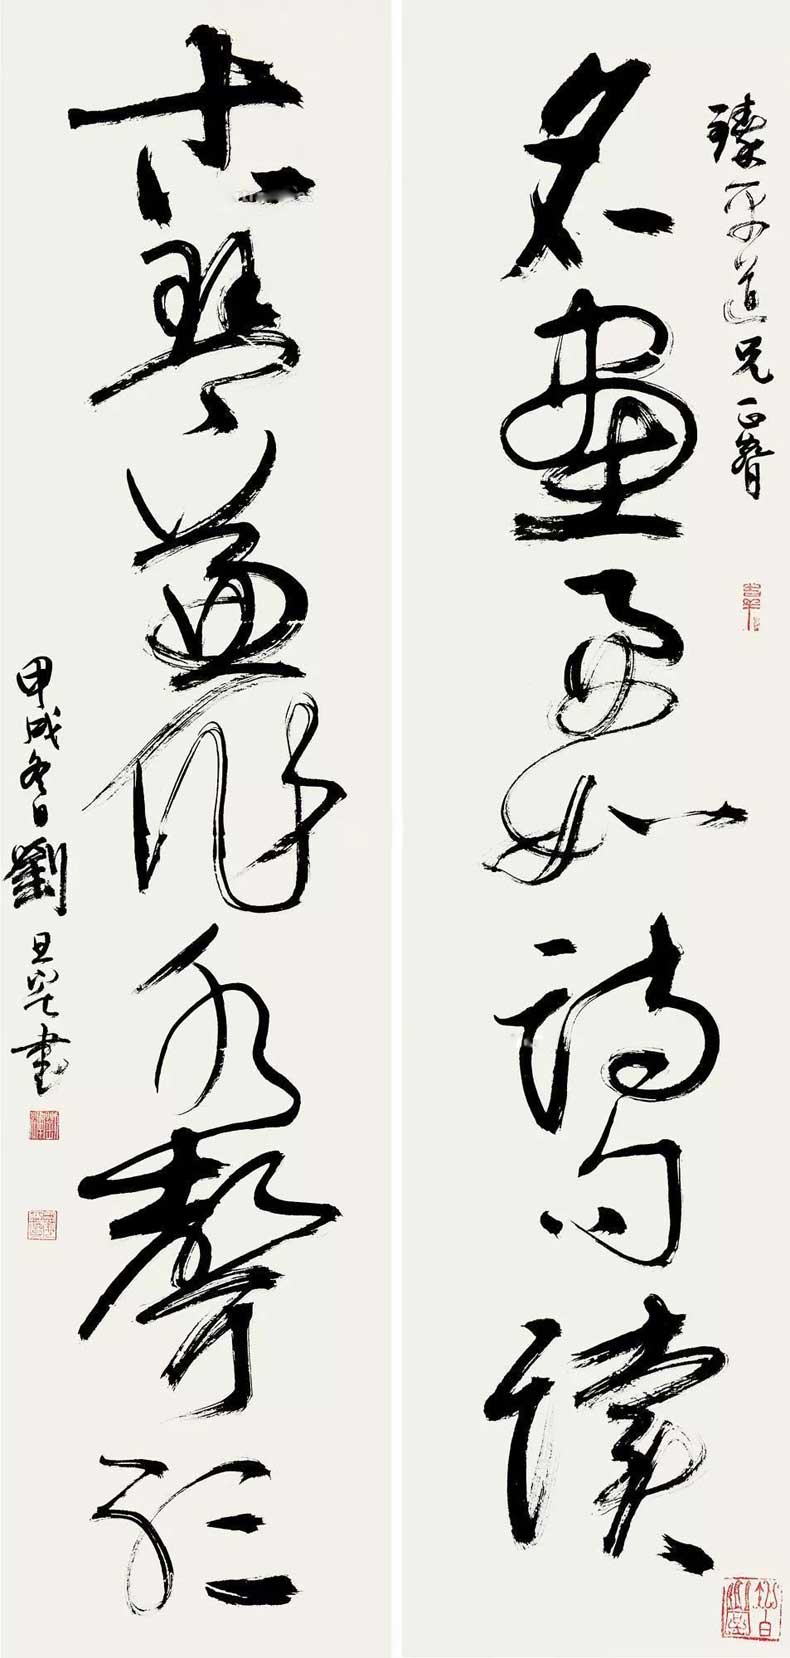 臻平道兄正腕
名画要如诗句读
古琴兼作水声听
甲戌冬日刘旦宅书